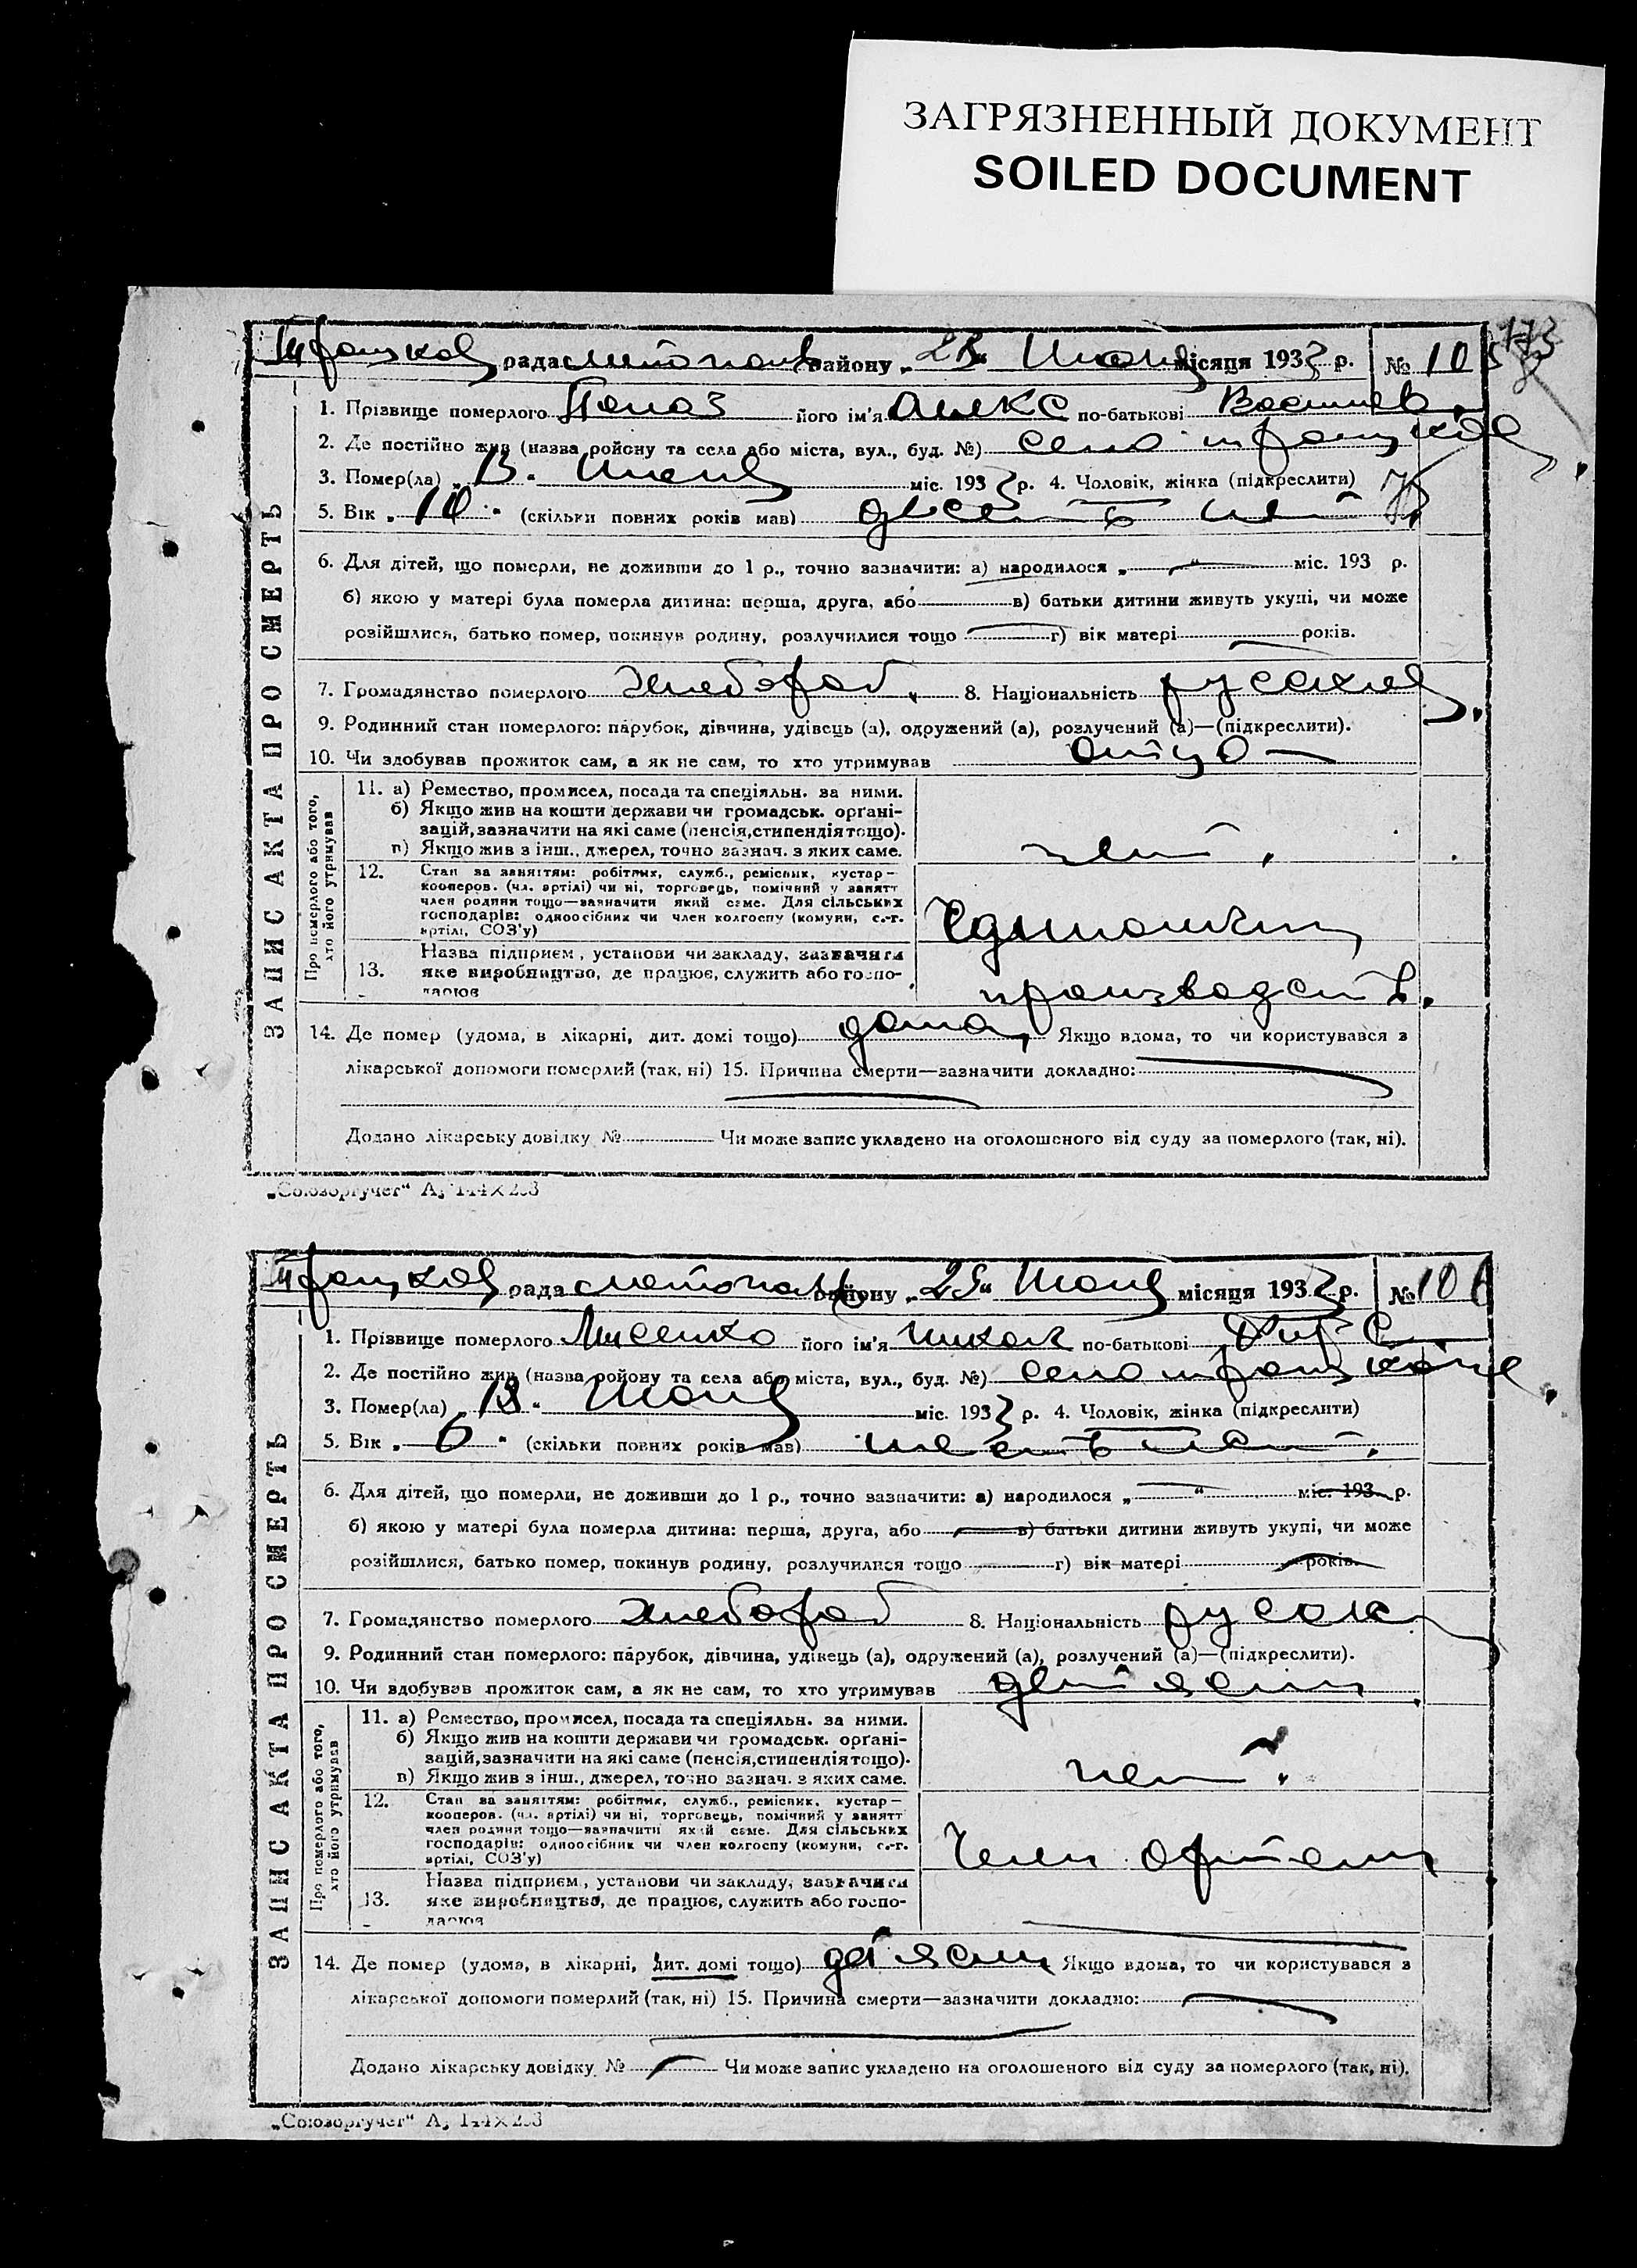 ЗАГРЯЗНЕННЫЙ ДОКУМЕНТ
SOILED DOCUMENT
173
рада району „25“ місяця 1933 р. № 105
1. Прізвище померлого його ім'я Алекс по-батькові Василев.
2. Де постійно жив (назва ройону та села або міста, вул., буд. №) село
3. Помер(ла) міс. 1933 р. 4. Чоловік, жінка (підкреслити)
5. Вік „10“ (скільки повних років мав) десять лет
6. Для дітей, що померли, не доживши до 1 р., точно зазначити: а) народилося „ “ міс. 193 р.
б) якою у матері була померла дитина: перша, друга, або в) батьки дитини живуть укупі, чи може
розійшлися, батько помер, покинув родину, розлучилися тощо г) вік матері років.
7. Громадянство померлого хлебороб 8. Національність
9. Родинний стан померлого: парубок, дівчина, удівець (а), одружений (а), розлучений (а)—(підкреслити).
10. Чи здобував прожиток сам, а як не сам, то хто утримував
11. а) Ремество, промисел, посада та спеціяльн. за ними.
б) Якщо жив на кошти держави чи громадськ. органі-
зацій, зазначити на які саме (пенсія, стипендія тощо).
в) Якщо жив з інш., джерел, точно зазнач. з яких саме.
нет.
12. Стан за заняттям: робітник, служб., ремісник, кустар—
кооперов. (чл. артілі) чи ні, торговець, помічний у занятт
член родини тощо—зазначити який саме. Для сільських
господарів: одноосібник чи член колгоспу (комуни, с.-г.
артілі, СОЗ'у)
13. Назва підприєм., установи чи закладу, зазначити
яке виробництво, де працює, служить або госпо-
дарює
14. Де помер (удома, в лікарні, дит. домі тощо) дома, Якщо вдома, то чи користувався з
лікарської допомоги померлий (так, ні) 15. Причина смерти—зазначити докладно:
Додано лікарську довідку № Чи може запис укладено на оголошеного від суду за померлого (так, ні).
„Союзоргучет“
ЗАПИС АКТА ПРО СМЕРТЬ
Про померлого або того,
хто його утримував
рада району „25“ місяця 1933 р. № 106
1. Прізвище померлого Лисенко його ім'я Никол по-батькові
2. Де постійно жив (назва ройону та села або міста, вул., буд. №) село
3. Помер(ла) „18“ міс. 1933 р. 4. Чоловік, жінка (підкреслити)
5. Вік „6“ (скільки повних років мав) шесть лет.
6. Для дітей, що померли, не доживши до 1 р., точно зазначити: а) народилося „ “ міс. 193 р.
б) якою у матері була померла дитина: перша, друга, або в) батьки дитини живуть укупі, чи може
розійшлися, батько помер, покинув родину, розлучилися тощо г) вік матері років.
7. Громадянство померлого хлебороб 8. Національність
9. Родинний стан померлого: парубок, дівчина, удівець (а), одружений (а), розлучений (а)—(підкреслити).
10. Чи здобував прожиток сам, а як не сам, то хто утримував детясли
11. а) Ремество, промисел, посада та спеціяльн. за ними.
б) Якщо жив на кошти держави чи громадськ. органі-
зацій, зазначити на які саме (пенсія, стипендія тощо).
в) Якщо жив з інш., джерел, точно зазнач. з яких саме.
нет.
12. Стан за заняттям: робітник, служб., ремісник, кустар—
кооперов. (чл. артілі) чи ні, торговець, помічний у занятт
член родини тощо—зазначити який саме. Для сільських
господарів: одноосібник чи член колгоспу (комуни, с.-г.
артілі, СОЗ'у)
Член ортели
13. Назва підприєм., установи чи закладу, зазначити
яке виробництво, де працює, служить або госпо-
дарює
14. Де помер (удома, в лікарні, дит. домі тощо) детясли Якщо вдома, то чи користувався з
лікарської допомоги померлий (так, ні) 15. Причина смерти—зазначити докладно:
Додано лікарську довідку № Чи може запис укладено на оголошеного від суду за померлого (так, ні).
„Союзоргучет“
ЗАПИС АКТА ПРО СМЕРТЬ
Про померлого або того,
хто його утримував